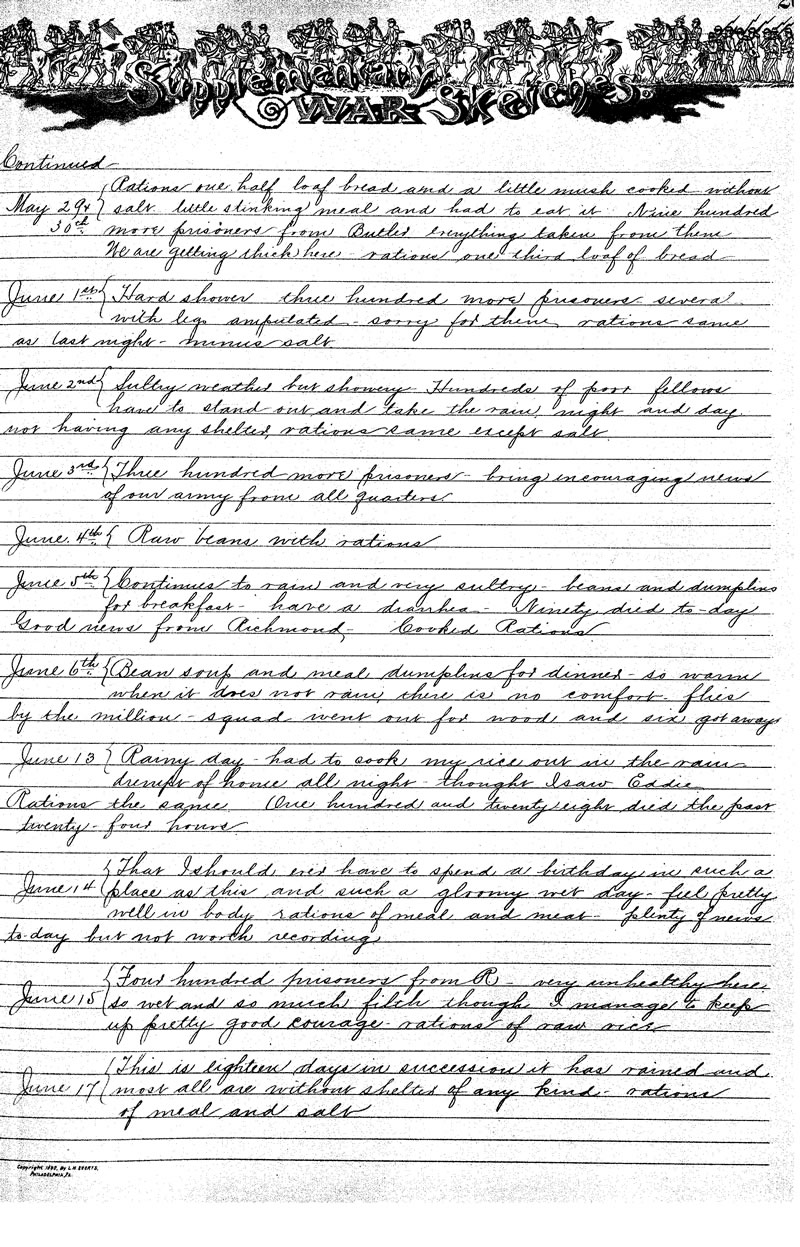 Supplementary
WAR Sketches.
Continued
Rations one half loaf bread and a little mush cooked without
May 29th salt little stinking meal and had to eat it Nine hundred
30th more prisoners from Butler everything taken from them
We are getting thick here - rations one third loaf of bread
June 1st Hard shower three hundred more prisoners several
with legs amputated - sorry for them, rations same
as last night - minus salt
June 2nd Sultry weather but showery. Hundreds of poor fellows
have to stand out and take the rain, night and day
not having any shelter, rations same except salt
June 3rd Three hundred more prisoners - bring encouraging news
of our army from all quarters
June 4th Raw beans with rations
June 5th Continues to rain and very sultry - beans and dumplins
for breakfast - have a diarrhea - Ninety died to-day
Good news from Richmond - Cooked Rations
June 6th Bean soup and meal dumplins for dinner - so warm
when it does not rain, there is no comfort - flies
by the million - squad went out for wood and six got away
June 13 Rainy day - had to cook my rice out in the rain
drempt of home all night - thought I saw Eddie
Rations the same One hundred and twenty eight died the past
twenty-four hours
That I should ever have to spend a birthday in such a
June 14 place as this and such a gloomy wet day - feel pretty
well in body rations of meal and meat - plenty of news
to-day but not worth recording
Four hundred prisoners from R - very unhealthy here,
June 15 so wet and so much filth though I manage to keep
up pretty good courage - rations of raw rice
This is eighteen days in succession it has rained and
June 17 most all are without shelter of any kind - rations
of meal and salt
Copyright 1882, By L.H. EVERTS,
PHILADELPHIA, PA.